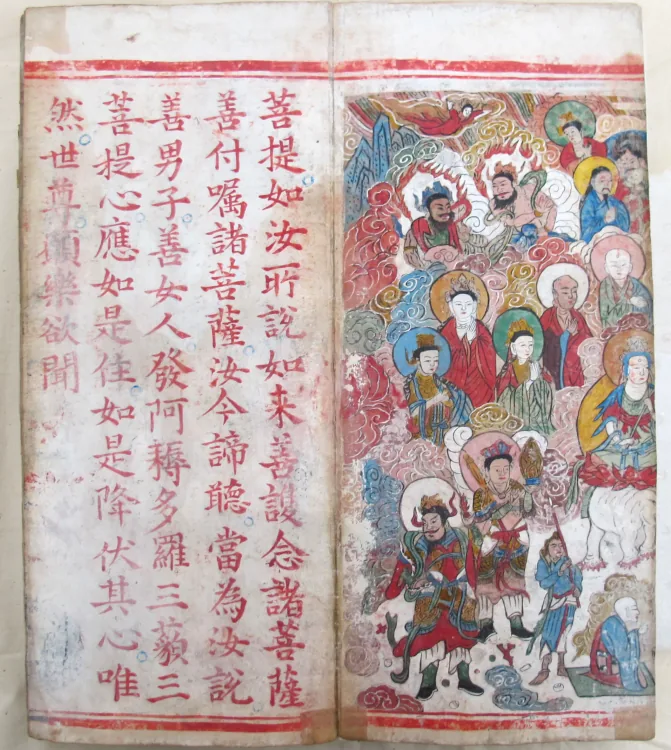 菩提如汝所說如来善護念諸菩薩
善付囑諸菩薩汝今諦聽當為汝說
善男子善女人發阿耨多羅三藐三
菩提心應如是住如是降伏其心唯
然世尊願樂欲聞